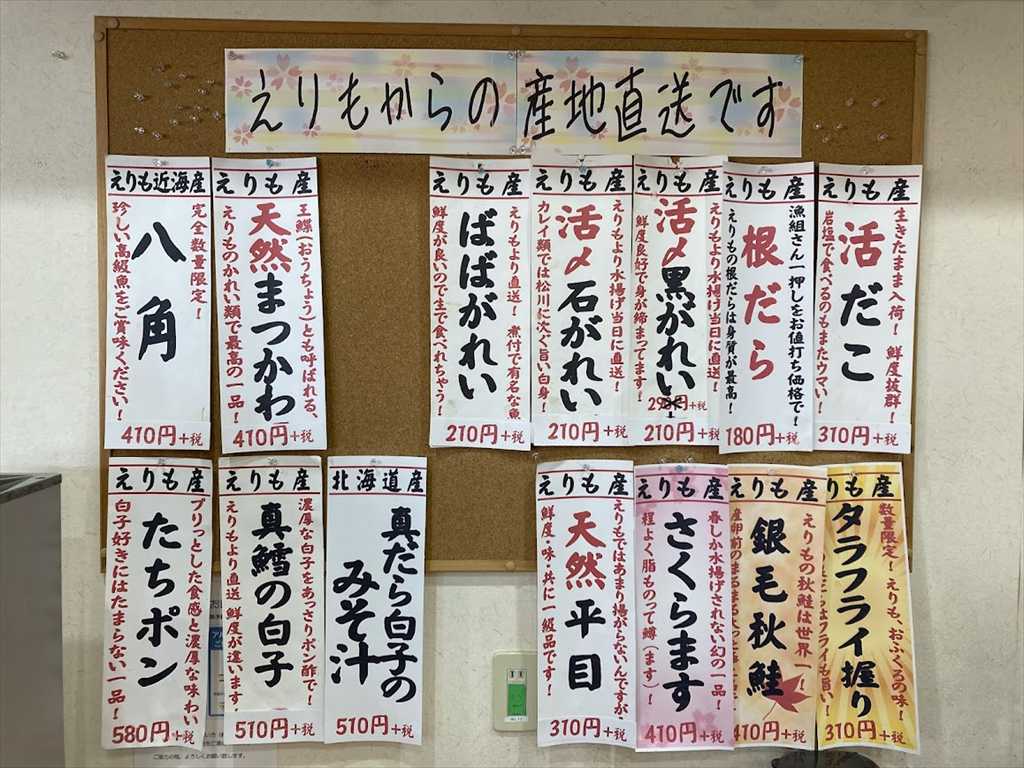 えりもからの産地直送です
えりも産
生きたまま入荷！ 鮮度抜群！
活だこ
岩塩で食べるのもまたウマい！
310円+税
えりも産
漁組さん一押しをお値打ち価格で！
根だら
えりもの根だらは身質が最高！
180円+税
えりも産
えりもより水揚げ当日に直送！
活〆黒がれい
鮮度良好で身が締まってます！
210円+税
えりも産
えりもより水揚げ当日に直送！
活〆石がれい
カレイ類では松川に次ぐ旨い白身！
210円+税
えりも産
えりもより直送！ 煮付で有名な魚
ばばがれい
鮮度が良いので生で食べれちゃう！
210円+税
えりも産
王鰈（おうちょう）とも呼ばれる、
天然まつかわ
えりものかれい類で最高の一品！
410円+税
えりも近海産
完全数量限定！
八角
珍しい高級魚をご賞味ください！
410円+税
えりも産
数量限定！ えりも、おふくろの味！
タラフライ握り
310円+税
えりも産
えりもの秋鮭は世界一！
銀毛秋鮭
410円+税
えりも産
春しか水揚げされない幻の一品！
さくらます
程よく脂ものって鱒（ます）！
410円+税
えりも産
えりもではあまり揚がらないんですが、
天然平目
鮮度・味・共に一級品です！
310円+税
北海道産
真だら白子の
みそ汁
510円+税
えりも産
濃厚な白子をあっさりポン酢で！
真鱈の白子
えりもより直送 鮮度が違います
510円+税
えりも産
プリっとした食感と濃厚な味わい
たちポン
白子好きにはたまらない一品！
580円+税